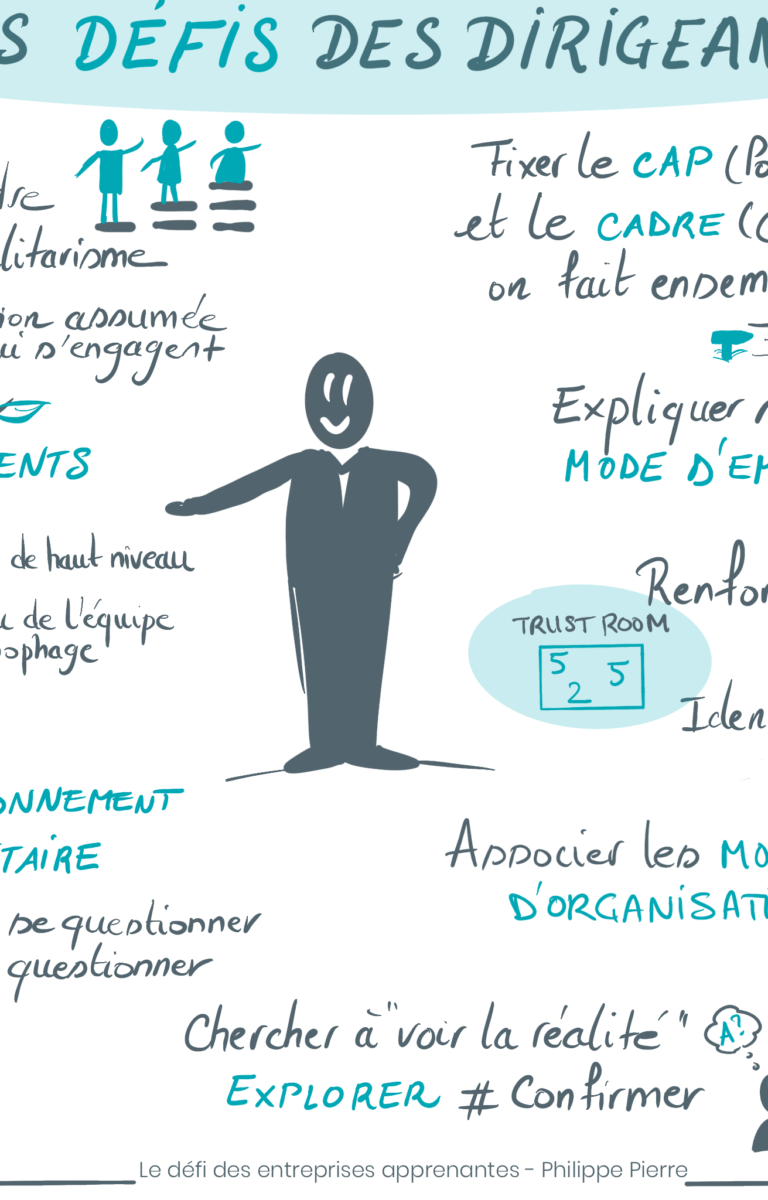 S DÉFIS DES DIRIGEAN
dre
litarisme
ion assumée
ui s'engagent
ENTS
de haut niveau
u de l'équipe
ophage
ONNEMENT
TAIRE
se questionner
questionner
Fixer le CAP (Po
et le CADRE (C
on fait ensem
Expliquer
MODE D'EM
Renfor
TRUST ROOM
5 5
2
Iden
Associer les MO
D'ORGANISATI
Chercher à "voir la réalité"
A?
EXPLORER # Confirmer
Le défi des entreprises apprenantes - Philippe Pierre